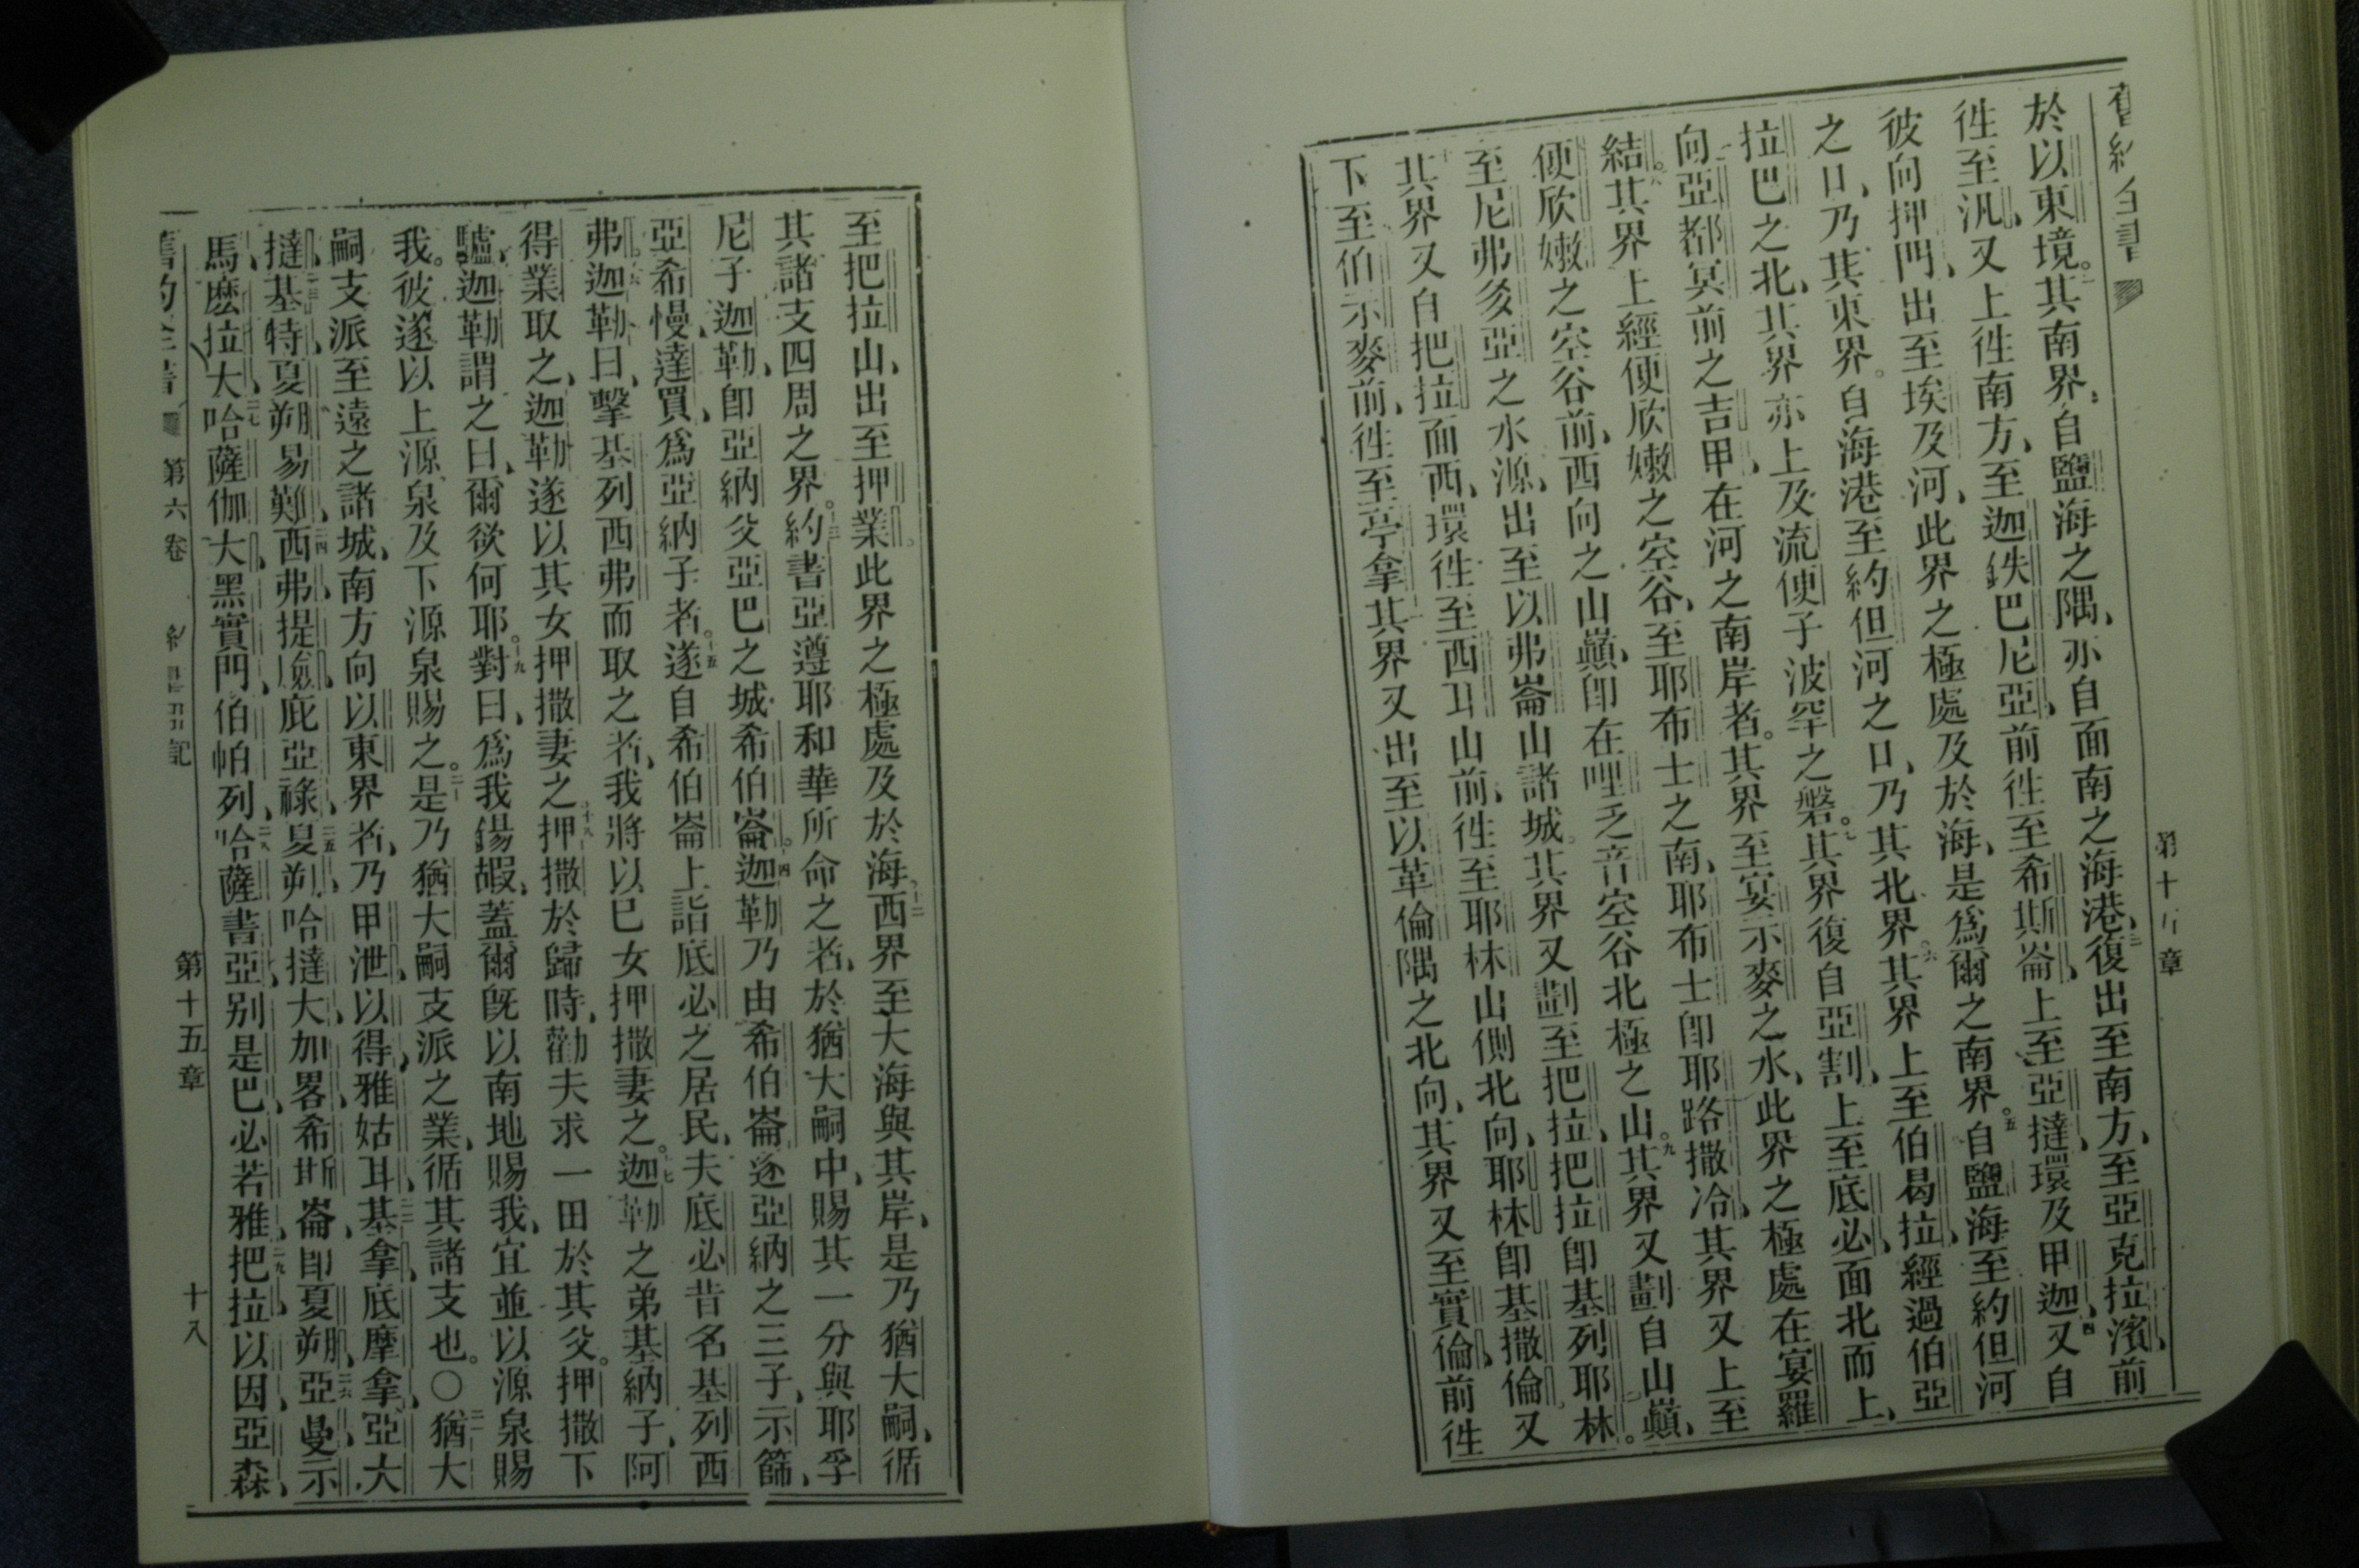 舊約全書
第十五章
於以東境其南界、自鹽海之隅、亦自面南之海港、復出至南方、至亞克拉濱、前
徃至汎、又上徃南方、至迦鉄巴尼亞、前徃至希斯崙、上至亞撻、環及甲迦、又自
彼向押門、出至埃及河、此界之極處及於海、是爲爾之南界。自鹽海至約但河
之口、乃其東界。自海港至約但河之口、乃其北界。其界上至伯曷拉、經過伯亞
拉巴之北、其界亦上及流便子波罕之磐。其界復自亞割、上至底必、面北而上、
向亞都冥前之吉甲、在河之南岸者。其界至宴示麥之水、此界之極處在宴羅
結。其界上經便欣嫩之空谷、至耶布士之南、耶布士卽耶路撒冷、其界又上至
便欣嫩之空谷前、西向之山巔、卽在哩乏音空谷北極之山。其界又劃自山巔、
至尼弗多亞之水源、出至以弗崙山諸城。其界又劃至把拉、把拉卽基列耶林。
其界又自把拉而西、環徃至西珥山前、徃至耶林山側北向、耶林卽基撒倫、又
下至伯示麥前、徃至亭拿其界又出至以革倫隅之北向、其界又至實倫、前徃
至把拉山、出至押業。此界之極處及於海。西界至大海與其岸、是乃猶大嗣、循
其諸支四周之界。約書亞遵耶和華所命之者、於猶大嗣中、賜其一分與耶孚
尼子迦勒、卽亞納父亞巴之城希伯崙。迦勒乃由希伯崙逐亞納之三子、示篩、
亞希慢、達買、爲亞納子者。遂自希伯崙上詣底必之居民、夫底必昔名基列西
弗。迦勒曰、擊基列西弗而取之者、我將以已女押撒妻之。迦勒之弟基納子、阿
得業取之、迦勒遂以其女押撒妻之。押撒於歸時、勸夫求一田於其父。押撒下
驢、迦勒謂之曰、爾欲何耶。對曰、爲我錫嘏、蓋爾旣以南地賜我、宜並以源泉賜
我。彼遂以上源泉及下源泉賜之。是乃猶大嗣支派之業、循其諸支也。〇猶大
嗣支派至遠之諸城、南方向以東界者、乃甲泄、以得、雅姑耳、基拿、底摩拿、亞大
撻、基特、夏朔、易難、西弗、提廉、庇亞祿、夏朔哈撻大、加畧希斯崙、卽夏朔、亞曼、示
馬、麽拉大、哈薩伽大、黑實門、伯帕列、哈薩書亞、別是巴、必若雅、把拉、以因、亞森、
舊約全書
第六卷
記
第十五章
十八